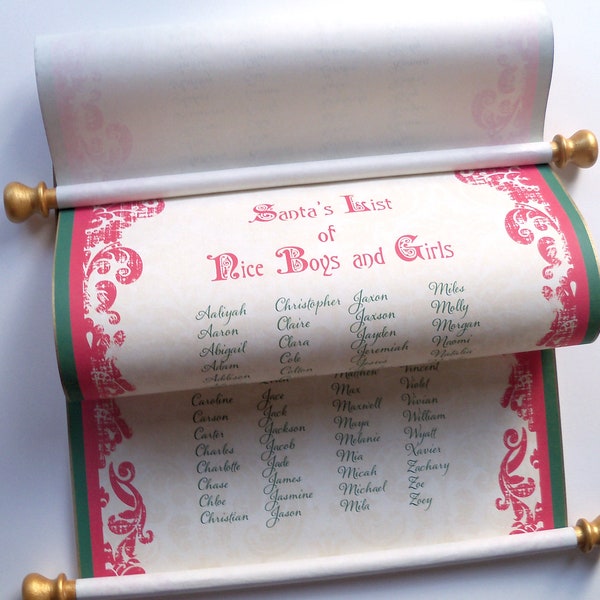 Santa's List
of
Nice Boys and Girls
Aaliyah Christopher Jaxon Miles
Aaron Claire Jaxson Molly
Abigail Clara Jayden Morgan
Adam Cole Jeremiah Naomi
Addison Colton Natalia
Matthew Vincent
Caroline Jace Max Violet
Carson Jack Maxwell Vivian
Carter Jackson Maya William
Charles Jacob Melanie Wyatt
Charlotte Jade Mia Xavier
Chase James Micah Zachary
Chloe Jasmine Michael Zoe
Christian Jason Mila Zoey